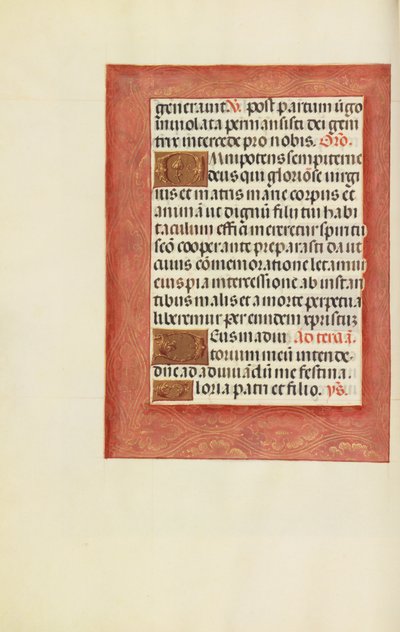 generarunt V. post partum v̄go
inviolata permansisti dei geni
trix intercede pro nobis. Orō.
Omnipotens sempiterne
deus qui gloriōse virgi
nis et matris marie corpus et
animā ut dignū filii tui habi
taculum effici mereretur spiritu
scō cooperante preparasti da ut
cuius cōmemoratione letamur
eius pia intercessione ab instan
tibus malis et a morte perpetua
liberemur per eundem xp̄ristuz
Deus in adiu Ad tercīā.
torium meū intende.
dn̄e ad adiuvādū me festina
Gloria patri et filio. ys̄.